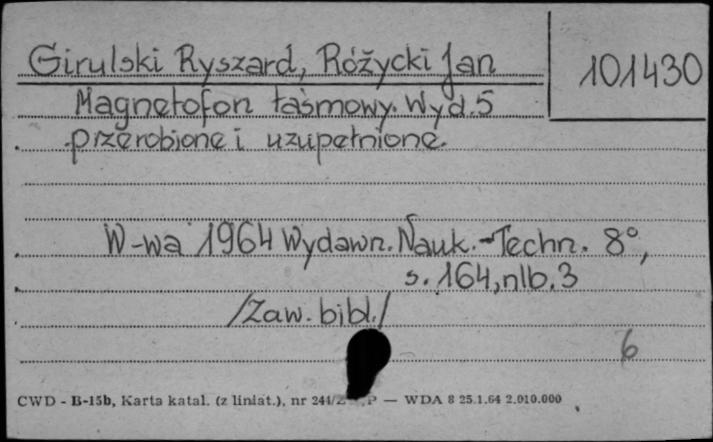 Girulski Ryszard, Różycki Jan
101430
Magnetofon taśmowy. Wyd. 5
przerobione i uzupełnione.
W-wa 1964 Wydawn. Nauk.-Techn. 8°,
s. 164, nlb. 3
/Zaw. bibl./
6
CWD - B-15b, Karta katal. (z liniat.), nr 244/Z P — WDA 8 25.1.64 2.010.000